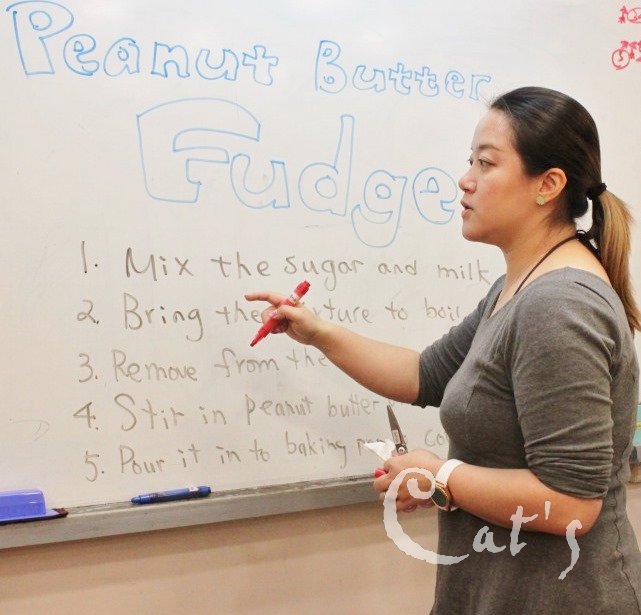 Peanut Butter
Fudge
1. Mix the sugar and milk
2. Bring the to
3. Remove from the
4. Stir in peanut butter
5. Pour it in to baking
Cat's